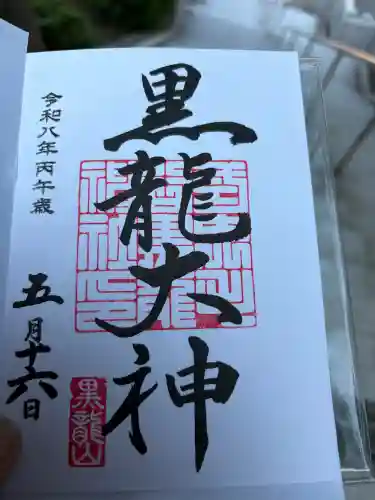 黒龍大神
令和八年丙午歳
五月十六日
黒龍山